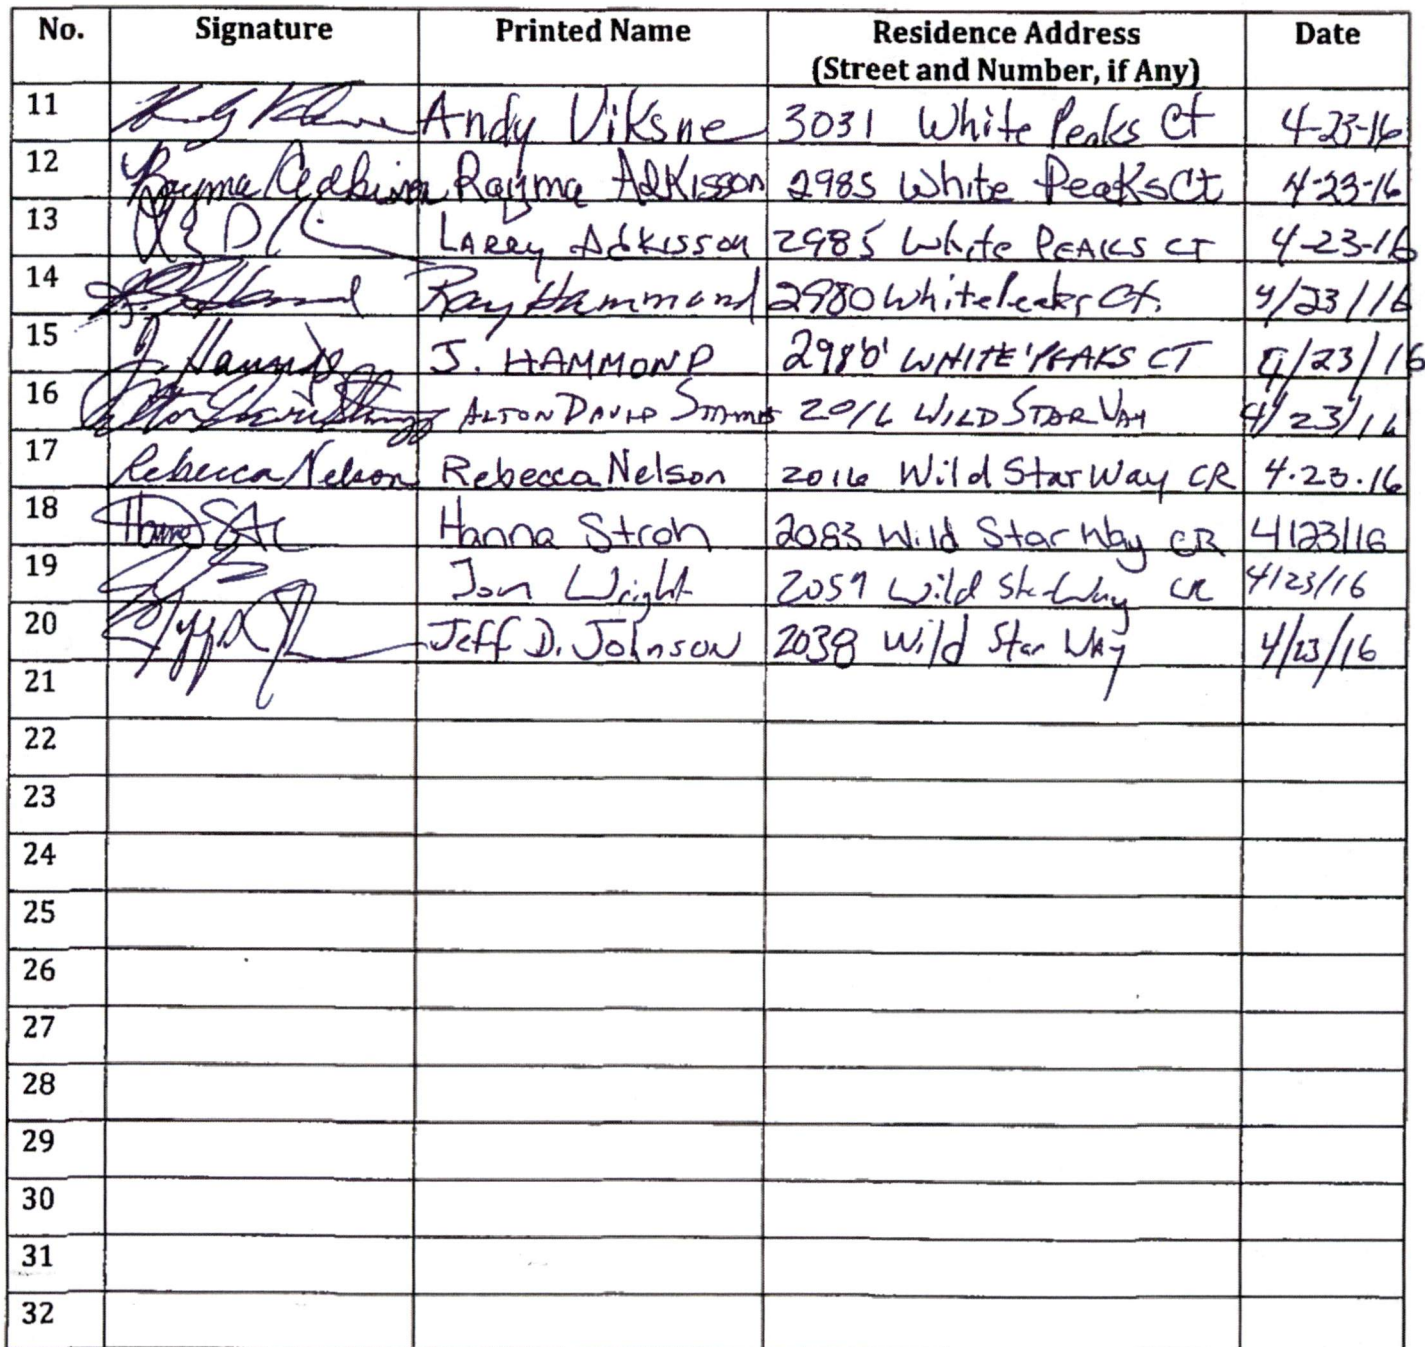 No. Signature Printed Name Residence Address Date
(Street and Number, if Any)
11 Andy Viksne 3031 White Peaks Ct 4-23-16
12 Rayma Adkisson Rayma AdKisson 2985 White PeaKs Ct 4-23-16
13 LARRy AdKISSON 2985 White PEAKS CT 4-23-16
14 Ray Hammond 2980 White Peaks Ct. 4/23/16
15 J. Hammond J. HAMMOND 2980 WHITE PEAKS CT 4/23/16
16 ALTON DAVID 2016 WILD STAR WAY 4/23/16
17 Rebecca Nelson Rebecca Nelson 2016 Wild Star Way CR 4.23.16
18 Hanna Stroh 2083 Wild Star Way CR 4/23/16
19 Jon Wright Wild Star Way CR 4/23/16
20 Jeff D. Johnson 2038 Wild Star WAy 4/23/16
21
22
23
24
25
26
27
28
29
30
31
32